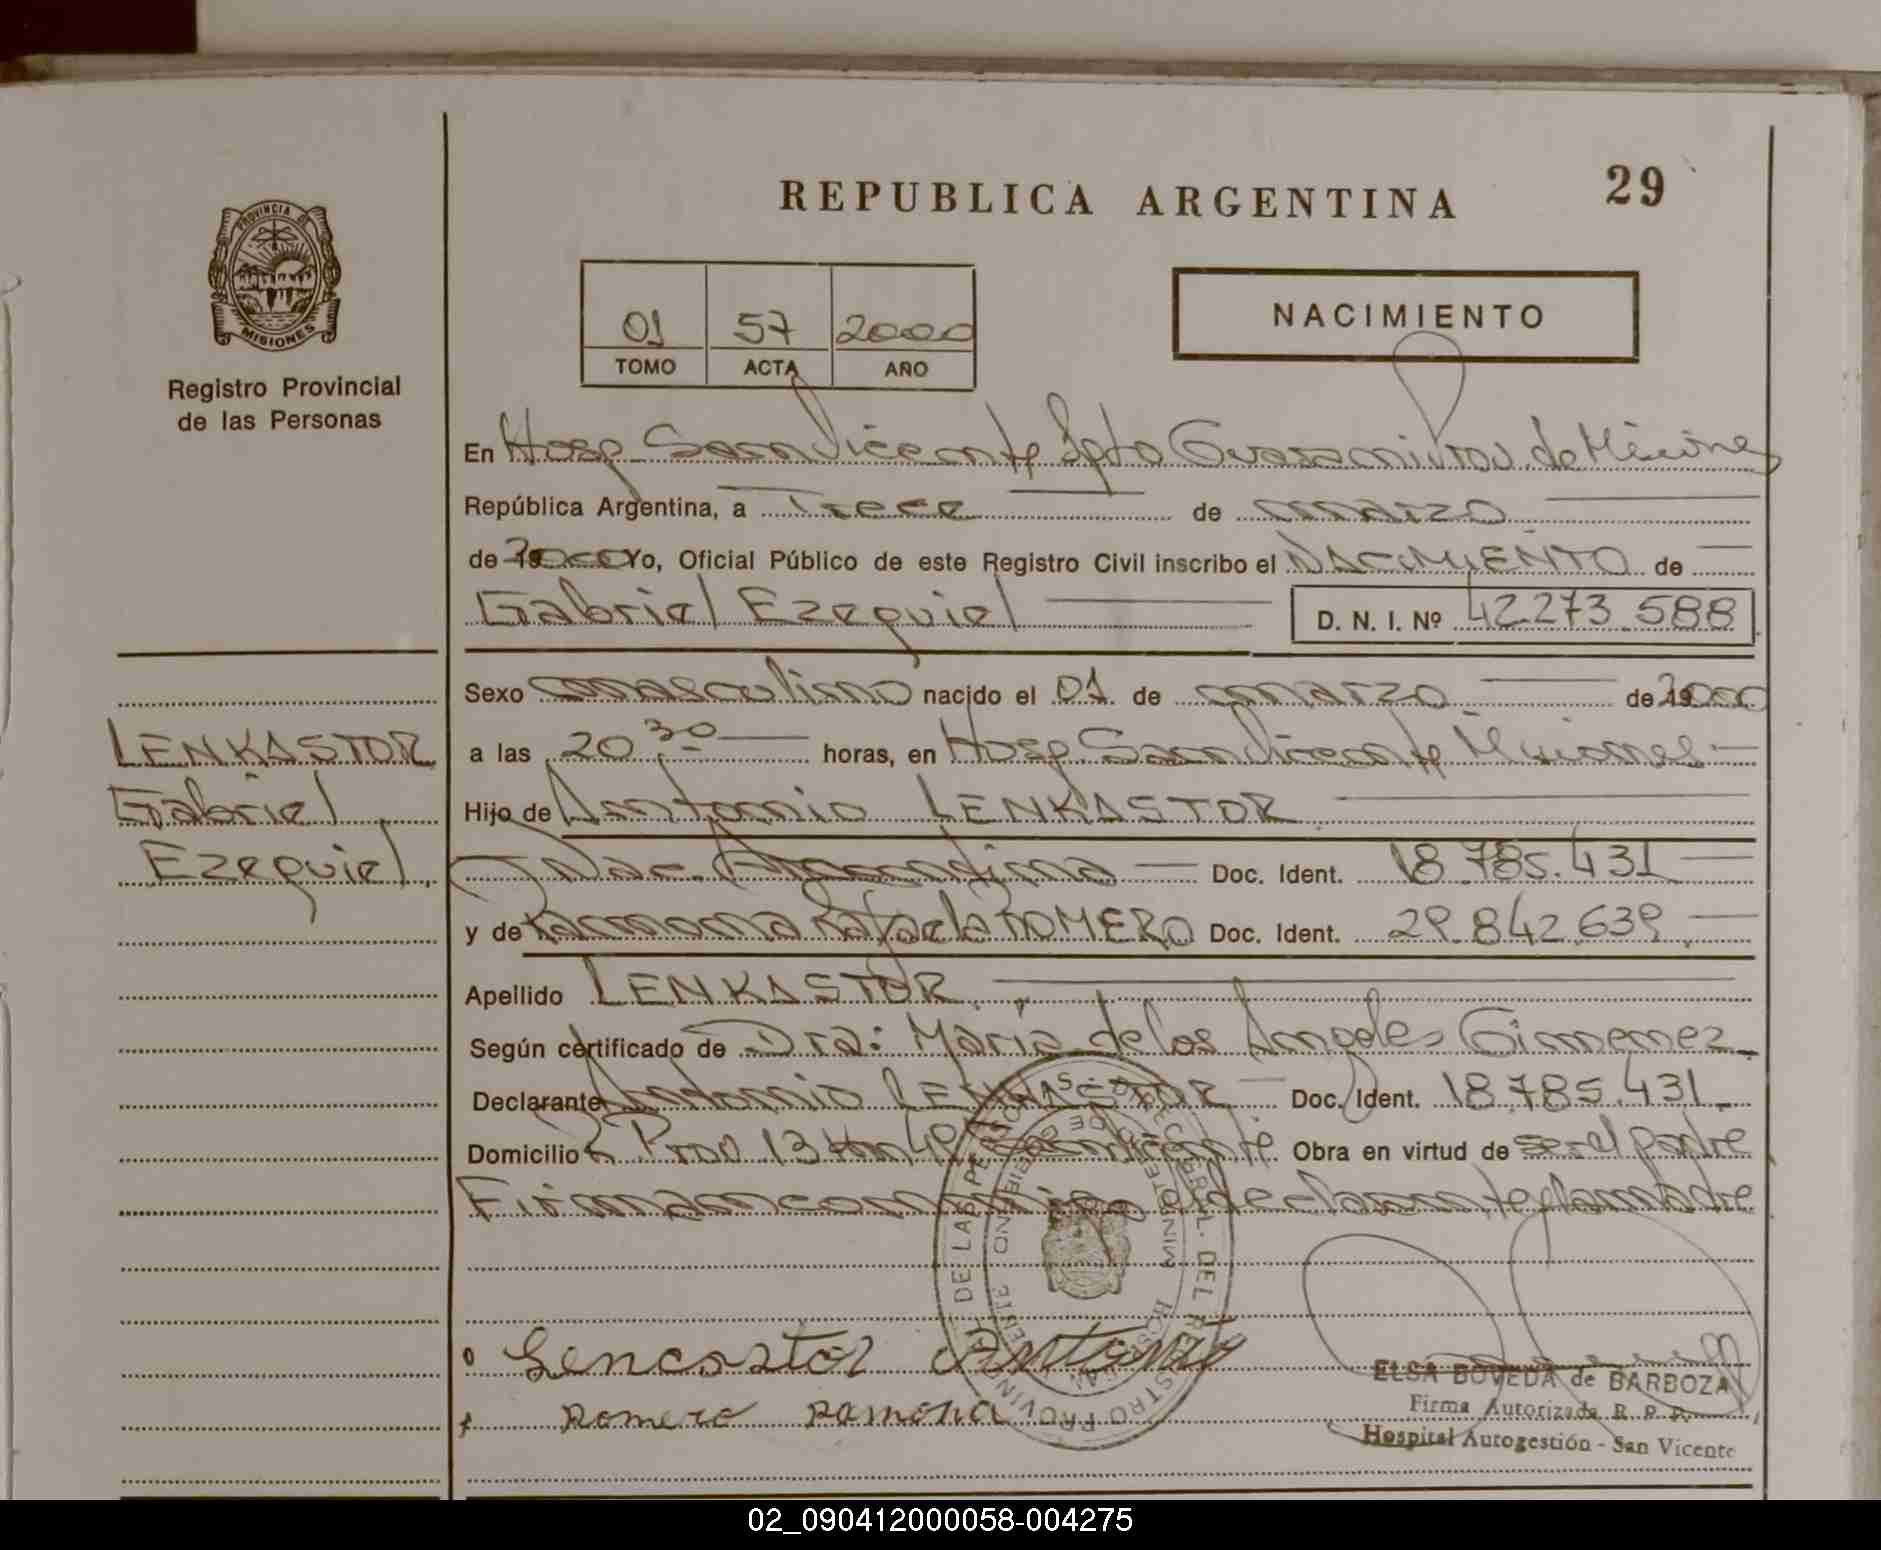 REPUBLICA ARGENTINA
29
PROVINCIA DE
MISIONES
Registro Provincial
de las Personas
01 57 2000
TOMO ACTA AÑO
NACIMIENTO
En Hosp San Vicente Dpto Guarani Prov. de Misiones
República Argentina, a Trece de marzo
de 2000 Yo, Oficial Público de este Registro Civil inscribo el NACIMIENTO de
Gabriel Ezequiel D. N. I. Nº 42.273.588
Sexo masculino nacido el 01 de marzo de 2000
a las 20 30 horas, en Hosp San Vicente Misiones
Hijo de Antonio LENKASTOR
Nac. Argentina Doc. Ident. 18.785.431
y de Ramona Rafaela ROMERO Doc. Ident. 29.842.639
Apellido LENKASTOR
Según certificado de Dra: María de los Angeles Gimenez
Declarante Antonio LENKASTOR Doc. Ident. 18.785.431
Domicilio R Prov 13 Km 40 San Vicente Obra en virtud de ser el padre
Firman conmigo el declarante y la madre
LENKASTOR
Gabriel
Ezequiel
Lencastor Antonio
Romero Ramona
ELSA BOVEDA de BARBOZA
Firma Autorizada R. P. P.
Hospital Autogestión - San Vicente
02_090412000058-004275